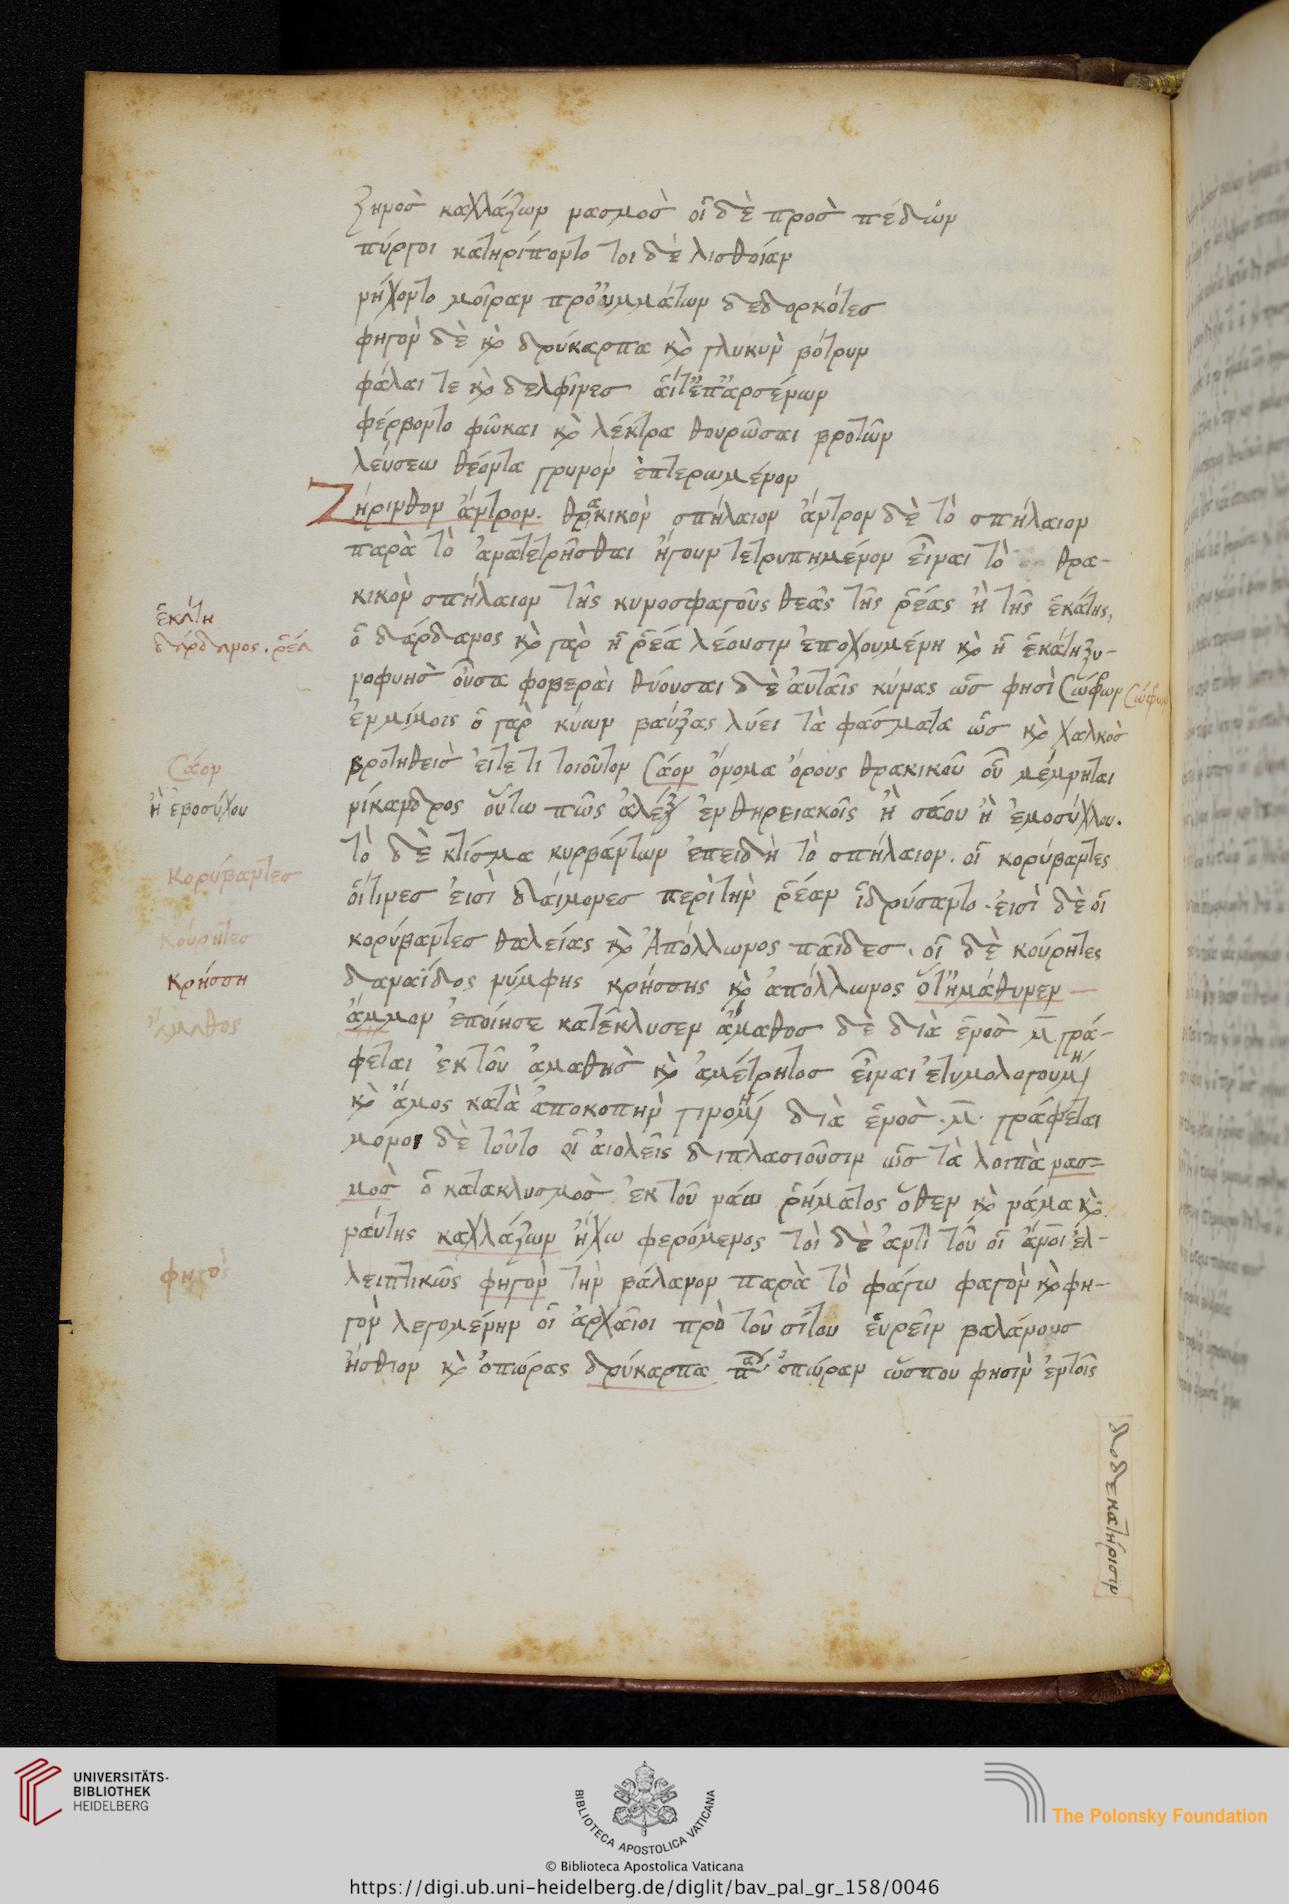 ζηνὸς καχλάζων νασμὸς οἱ δὲ πρὸς πέδων
πύργοι κατηρίποντο τοι δὲ λισθοίαν
νήχοντο μοῖραν προὐμμάτων δεδορκότες
φηγὸν δὲ κὶ δρύκαρπα κὶ γλυκὺν βότρυν
φάλαι τε κὶ δελφῖνες αἵτ' ἐπ' ἀρσένων
φέρβοντο φῶκαι κὶ λέκτρα θουρῶσαι βροτῶν
λεύσσω θέοντα γρυνὸν ἐπτερωμένον
Ζήρινθον ἄντρον. θρακικὸν σπήλαιον ἄντρον δὲ τὸ σπήλαιον
παρὰ τὸ ἀνατετρῆσθαι ἤγουν τετρυπημένον εἶναι τὸ θρα-
κικὸν σπήλαιον τῆς κυνοσφαγοῦς θεᾶς τῆς ῥέας ἢ τῆς ἑκάτης,
ὁ δάρδανος κὶ γὰρ ἡ ῥέα λέουσιν ἐποχουμένη κὶ ἡ ἑκάτη ξυ-
νοφυὴς οὖσα φοβεραὶ θύουσαι δὲ αὐταῖς κύνας ὥς φησὶ Σώφρων
ἐν μίμοις ὁ γὰρ κύων βαύξας λύει τὰ φάσματα ὡς κὶ χαλκὸς
βροτηθεὶς εἴτε τι τοιοῦτον Σάον ὄνομα ὄρους θρακικοῦ οὗ μέμνηται
νίκανδρος οὕτω πῶς ἀλέξ ἐν θηρειακοῖς ἢ σάου ἢ ἐμοσύχλου.
τὸ δὲ κτίσμα κυρβάντων ἐπειδὴ τὸ σπήλαιον. οἱ κορύβαντες
οἵτινες εἰσὶ δαίμονες περὶ τὴν ῥέαν ἱδρύσαντο. εἰσὶ δὲ οἱ
κορύβαντες θαλείας κὶ Ἀπόλλωνος παῖδες. οἱ δὲ κούρητες
δαναΐδος νύμφης κρήσσης κὶ ἀπόλλωνος ὅτ' ἠμάθυνεν
ἄμμον ἐποίησε κατέκλυσεν ἄμαθος δὲ διὰ ἑνὸς μ γρά-
φεται ἐκ τοῦ ἀμαθὴς κὶ ἀμέτρητος εἶναι ἐτυμολογουμ
κὶ ἄμος κατὰ ἀποκοπὴν γινομ διὰ ἑνὸς. μ. γράφεται
μόνοι δὲ τοῦτο οἱ αἰολεῖς διπλασιοῦσιν ὡς τὰ λοιπὰ νασ-
μὸς ὁ κατακλυσμὸς ἐκ τοῦ νάω ῥήματος ὅθεν κὶ νάμα κὶ
ναύτης καχλάζων ἤχω φερόμενος τοὶ δὲ ἀντὶ τοῦ οἱ ἄνοι ἐλ-
λειπτικῶς φηγὸν τὴν βάλανον παρὰ τὸ φάγω φαγὸν κὶ φη-
γὸν λεγομένην οἱ ἀρχαῖοι πρὸ τοῦ σίτου εὑρεῖν βαλάνους
ἤσθιον κὶ ὀπώρας δρύκαρπα ὀπώραν ὥσπου φησὶν ἐν τοῖς
δοδεκατήρισιν
ἑκάτη
δάρδανος. ῥέα
Σώφρων
Σάον
ἢ ἐβοσύχου
κορύβαντες
κούρητες
κρήσση
ἄμαθος
φηγὸς
UNIVERSITÄTS-
BIBLIOTHEK
HEIDELBERG
BIBLIOTECA APOSTOLICA VATICANA
The Polonsky Foundation
© Biblioteca Apostolica Vaticana
https://digi.ub.uni-heidelberg.de/diglit/bav_pal_gr_158/0046